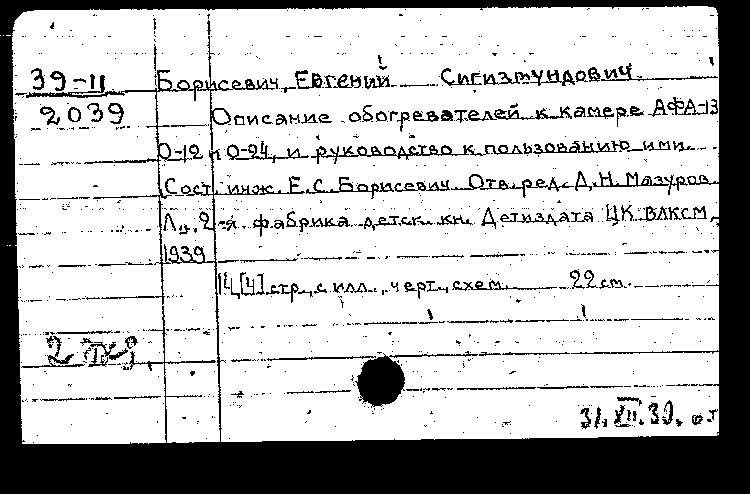 39-11
2039
Борисевич, Евгений Сигизмундович
Описание обогревателей к камере АФА-13
О-12 и О-24, и руководство к пользованию ими.
Сост. инж. Е.С. Борисевич. Отв. ред. Д.Н. Мазуров.
Л., 2-я фабрика детск. кн. Детиздата ЦК ВЛКСМ,
1939
14[4] стр., с илл., черт., схем. 22 см.
31.XII.39.